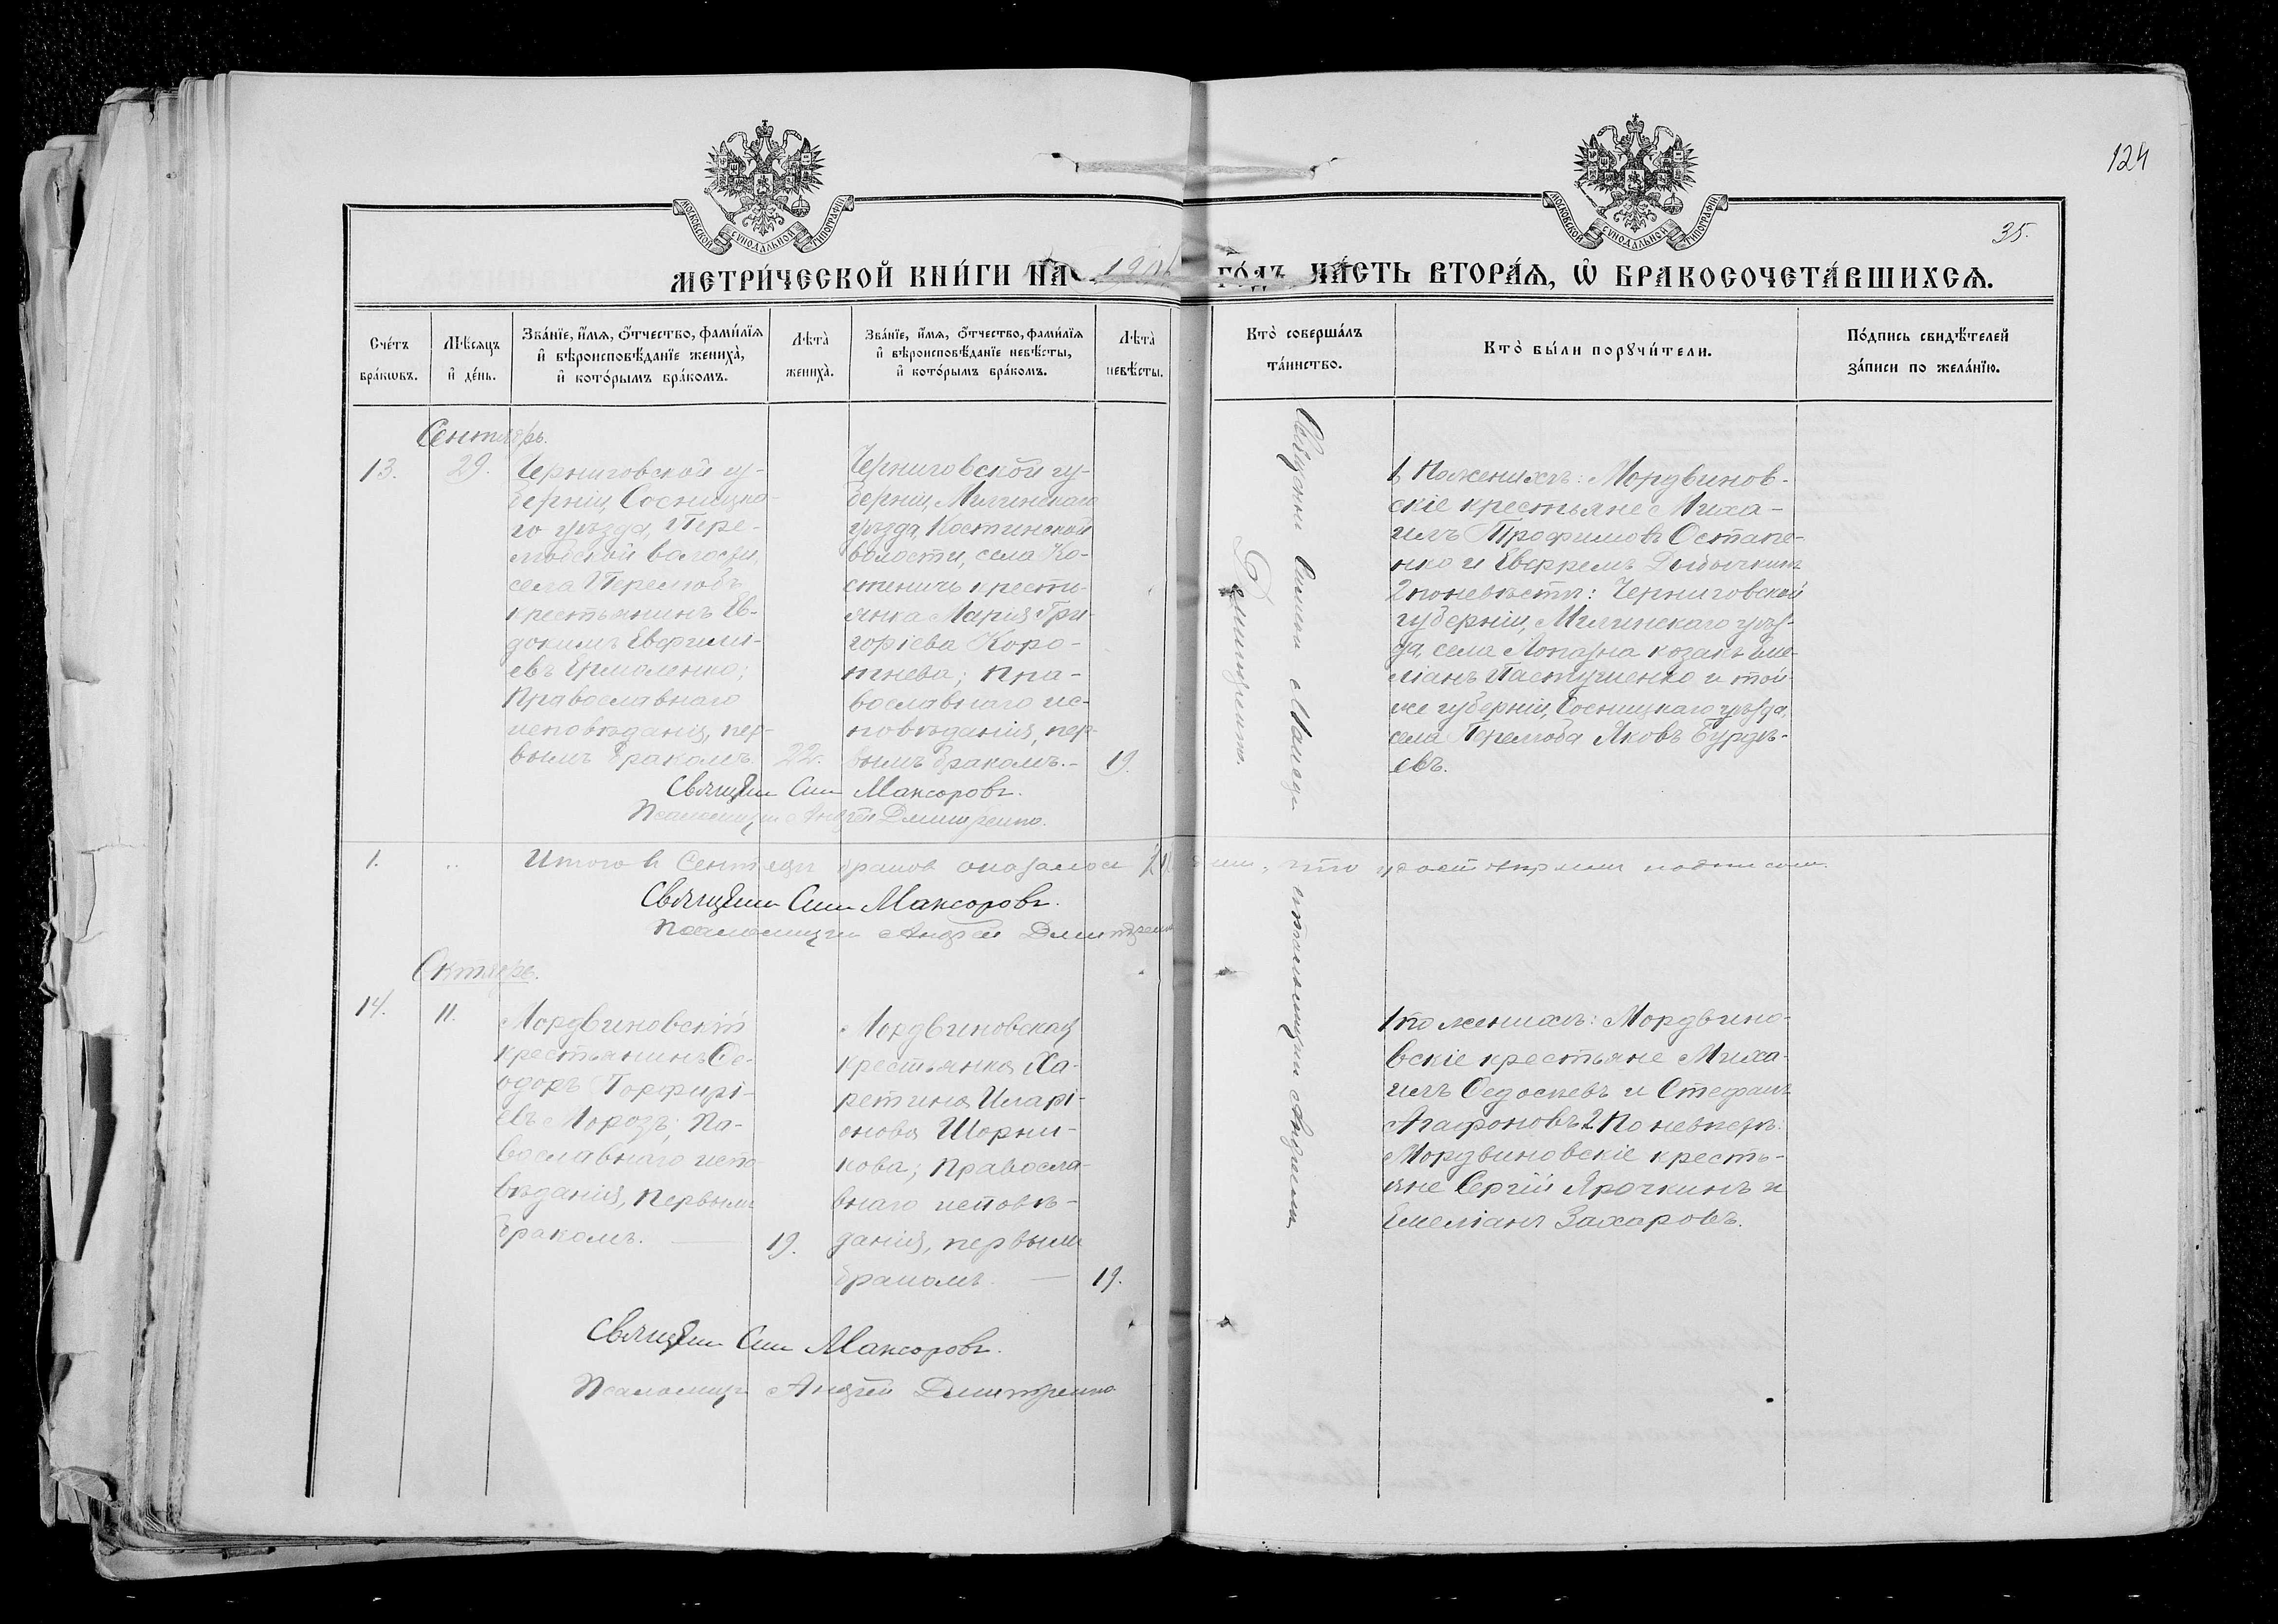 124
35.
МОСКОВСКОЙ СУНОДАЛЬНОЙ ТИПОГРАФІИ
МОСКОВСКОЙ СУНОДАЛЬНОЙ ТИПОГРАФІИ
МЕТРИ́ЧЕСКОЙ КНИ́ГИ НА
ГО́ДЪ, ЧА́СТЬ ВТОРА́Ѧ, Ѽ БРАКОСОЧЕТА́ВШИХСѦ.
Сче́тъ
бра́кѡвъ.
Мѣ́сѧцъ
и҆ де́нь.
Зва́нїе, и҆́мѧ, ѻ҆́тчество, фами́лїѧ
и҆ вѣроисповѣ́данїе жениха̀,
и҆ кото́рымъ бра́комъ.
Лѣта̀
жениха̀.
Зва́нїе, и҆́мѧ, ѻ҆́тчество, фами́лїѧ
и҆ вѣроисповѣ́данїе невѣ́сты,
и҆ кото́рымъ бра́комъ.
Лѣта̀
невѣ́сты.
Кто̀ соверша́лъ
та́инство.
Кто̀ бы́ли порꙋчи́тели.
По́дпись свидѣ́телей
за́писи по жела́нїю.
Сентябрь.
13.
29.
Черниговской гу-
берніи, Сосницка-
го уѣзда, Пере-
любской волости,
села Перелюбъ
крестьянинъ Ев-
докимъ Евфимі-
евъ Ермоленко;
Православнаго
исповѣданія, пер-
вымъ бракомъ.
22.
Черниговской гу-
берніи, Мглинскаго
уѣзда, Костинской
волости, села Ко-
стеничь крестья-
янка Марія Гри-
горіева Коро-
ткева; Пра-
вославнаго ис-
повѣданія, пер-
вымъ бракомъ.-
19.
Священн Сим Максоровъ.
Псаломщикъ Андрей Дмитренко.
Священни Симеон
и псаломщикъ Андрей
Дмитренко.
1) По женихѣ: Мордвинов-
скіе крестьяне Миха-
илъ Трофимовъ Остапе-
нко и Ефремъ
2 по невѣсты: Черниговской
губерніи, Мглинскаго уѣз-
да, села Лопазна козакъ Еме-
ліанъ Пастушенко и той-
же губерніи, Сосницкаго уѣзда,
села Перелюба Яковъ Бурдѣ-
евъ.
1.
Итого въ Сентябрѣ браковъ оказалось
что удостовѣряемъ подписомъ.
Священн Сим Максоровъ.
Псаломщикъ Андрей Дмитренко
Октябрь.
14.
11.
Мордвиновскій
крестьянинъ Ѳе-
одоръ Порфирі-
евъ Морозъ; Па-
вославнаго испо-
вѣданія, первымъ
бракомъ.
19.
Мордвиновская
крестьянка Ха-
ретина Иларі-
онова Шорни-
кова; Правосла-
внаго исповѣ-
данія, первымъ
бракомъ.
19.
1 по женихѣ: Мордвино-
вскіе крестьяне Миха-
илъ Ѳедосѣевъ и Стефанъ
Агафоновъ. 2 По невѣстѣ:
Мордвиновскіе кресть-
яне Сергій Ярочкинъ и
Емеліанъ Захаровъ.
Священн Сим Максоровъ.
Псаломщикъ Андрей Дмитренко